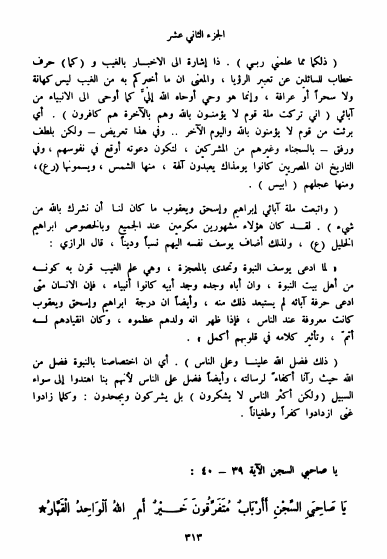 الجزء الثاني عشر
( ذلكما مما علمني ربي ) . ذا إشارة الى الاخبار بالغيب و ( كما ) حرف
خطاب للسائلين عن تعبير الرؤيا ، والمعنى ان ما أخبركم به من الغيب ليس كهانة
ولا سحراً أو عرافة ، وإنما هو وحي أوحاه الله إليَّ كما أوحى الى الأنبياء من
آبائي ( اني تركت ملة قوم لا يؤمنون بالله وهم بالآخرة هم كافرون ) . أي
برئت من قوم لا يؤمنون بالله واليوم الآخر .. وفي هذا تعريض – ولكن بلطف
ورفق – بالسجناء وغيرهم من المشركين ، لتكون دعوته أوقع في نفوسهم ، وفي
التاريخ ان المصريين كانوا يومذاك يعبدون آلهة ، منها الشمس ، ويسمونها ( رع ) ،
ومنها عجلهم ( ابيس ) .
( واتبعت ملة آبائي إبراهيم وإسحق ويعقوب ما كان لنا أن نشرك بالله من
شيء ) . لقد كان هؤلاء مشهورين مكرمين عند الجميع وبالخصوص ابراهيم
الخليل (ع) ، ولذلك أضاف يوسف نفسه اليهم نسباً وديناً ، قال الرازي :
« لما ادعى يوسف النبوة وتحدى بالمعجزة ، وهي علم الغيب قرن به كونه
من أهل بيت النبوة ، وان أباه وجده وجد أبيه كانوا أنبياء ، فإن الانسان متى
ادعى حرفة آبائه لم يستبعد ذلك منه ، وأيضاً ان درجة ابراهيم وإسحق ويعقوب
كانت معروفة عند الناس ، فإذا ظهر انه ولدهم عظموه ، وكان انقيادهم له
أتمّ ، وتأثير كلامه في قلوبهم أكمل » .
( ذلك فضل الله علينا وعلى الناس ) . أي ان اختصاصنا بالنبوة فضل من
الله حيث رآنا أكفاء لرسالته ، وأيضاً فضل على الناس لأنهم بنا اهتدوا إلى سواء
السبيل ( ولكن أكثر الناس لا يشكرون ) بل يشركون ويجحدون : وكلما زادوا
غنى ازدادوا كفراً وطغياناً .
يا صاحبي السجن الآية ٣٩ – ٤٠ :
يَا صَاحِبَيِ السِّجْنِ أَأَرْبَابٌ مُتَفَرِّقُونَ خَيْرٌ أَمِ اللهُ الْوَاحِدُ الْقَهَّارُ *
٣١٣